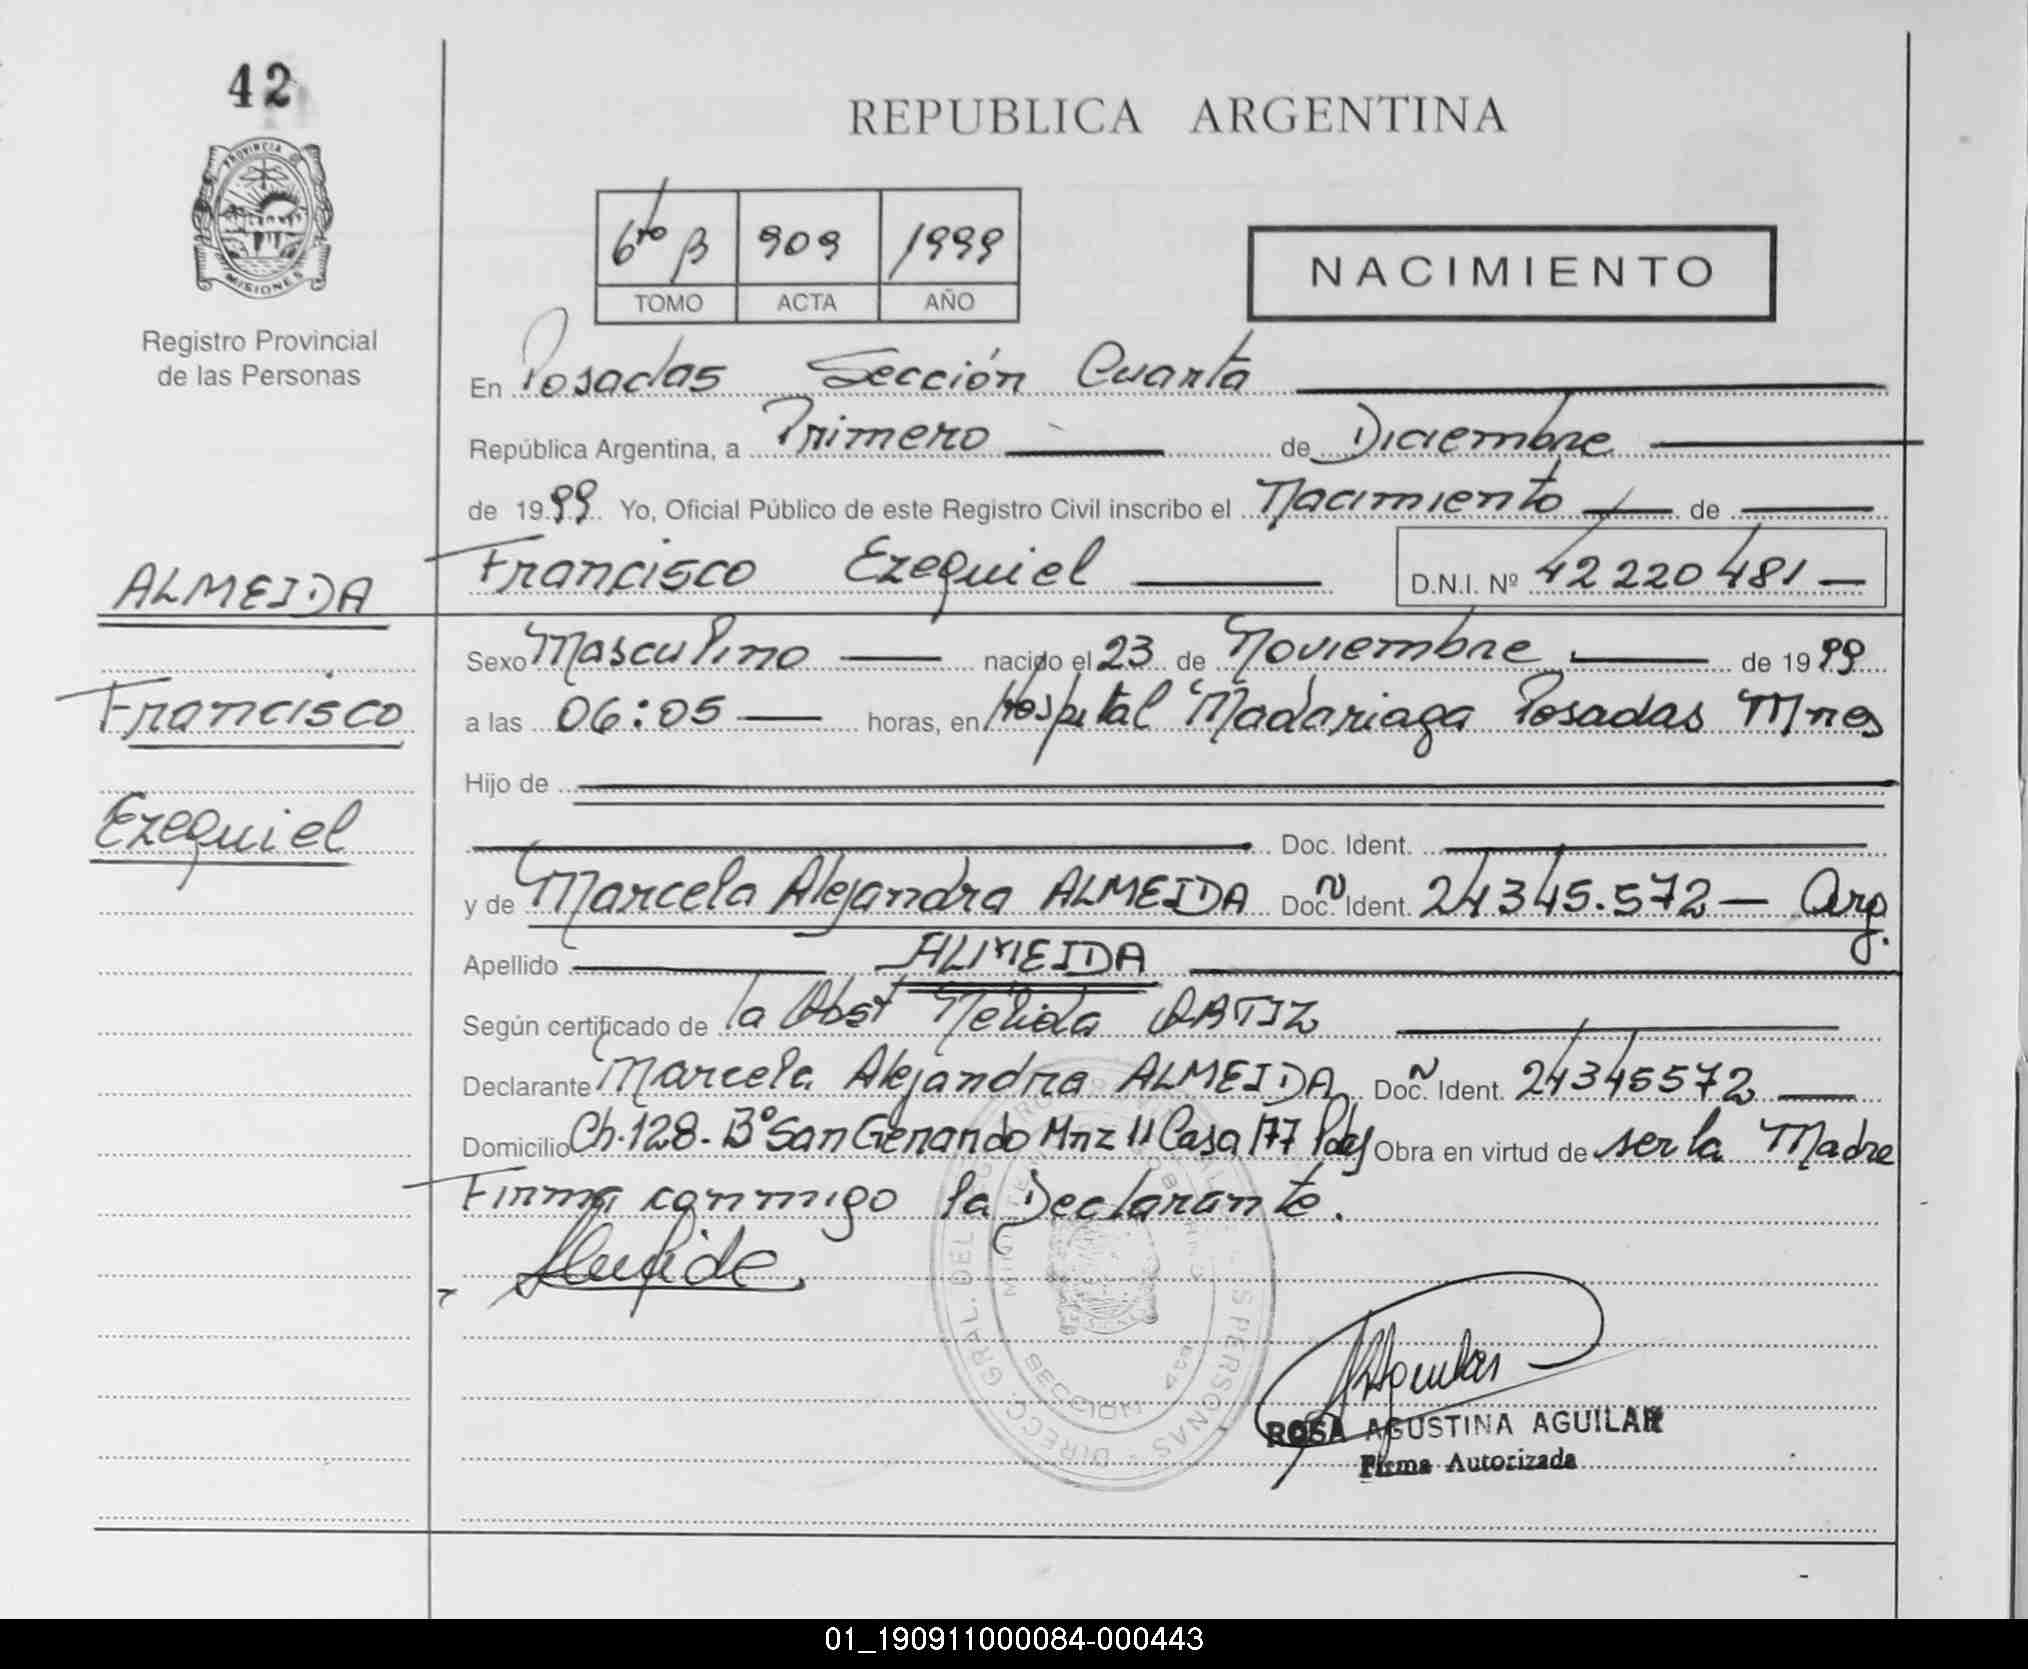 42
PROVINCIA DE
MISIONES
Registro Provincial
de las Personas
REPUBLICA ARGENTINA
6to B 909 1999
TOMO ACTA AÑO
NACIMIENTO
En Posadas Sección Cuarta
República Argentina, a Primero de Diciembre
de 1999 Yo, Oficial Público de este Registro Civil inscribo el Nacimiento de
Francisco Ezequiel D.N.I. Nº 42220481
ALMEIDA
Francisco
Ezequiel
Sexo Masculino nacido el 23 de Noviembre de 1999
a las 06:05 horas, en Hospital Madariaga Posadas Mnes
Hijo de
Doc. Ident.
y de Marcela Alejandra ALMEIDA Doc. Ident. 24345.572 Arg.
Apellido ALMEIDA
Según certificado de la Obst Nélida ORTIZ
Declarante Marcela Alejandra ALMEIDA Doc. Ident. 24345572
Domicilio Ch. 128. Bº San Gerardo Mnz 11 Casa 177 Pdas Obra en virtud de ser la Madre
Firma conmigo la Declarante.
DIRECC. GRAL. DEL PERSONAS
SECCION 4ta
ROSA AGUSTINA AGUILAR
Firma Autorizada
01_190911000084-000443